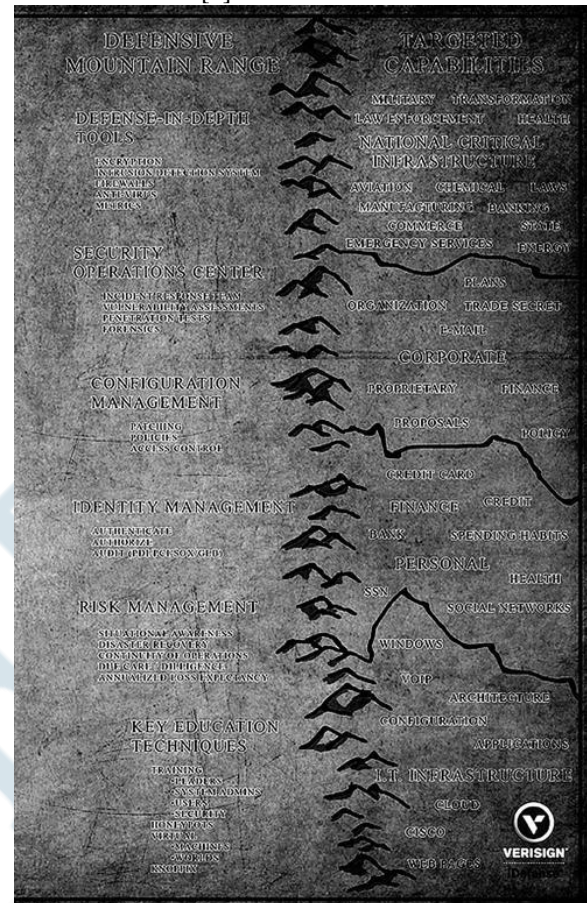 DEFENSIVE
MOUNTAIN RANGE
DEFENSE-IN-DEPTH
TOOLS
ENCRYPTION
INTRUSION DETECTION SYSTEM
FIREWALLS
ANTI-VIRUS
METRICS
SECURITY
OPERATIONS CENTER
INCIDENT RESPONSE TEAM
VULNERABILITY ASSESSMENTS
PENETRATION TESTS
FORENSICS
CONFIGURATION
MANAGEMENT
PATCHING
POLICIES
ACCESS CONTROL
IDENTITY MANAGEMENT
AUTHENTICATE
AUTHORIZE
AUDIT
RISK MANAGEMENT
SITUATIONAL AWARENESS
DISASTER RECOVERY
CONTINUITY OF OPERATIONS
DUE CARE / DILLIGENCE
ANNUALIZED LOSS EXPECTANCY
KEY EDUCATION
TECHNIQUES
TRAINING
-LEADERS
-SYSTEM ADMINS
-USERS
-SECURITY
HONEYPOTS
VIRTUAL
-MACHINES
-WORLDS
KNOPPIX
TARGETED
CAPABILITIES
MILITARY TRANSFORMATION
LAW ENFORCEMENT HEALTH
NATIONAL CRITICAL
INFRASTRUCTURE
AVIATION CHEMICAL LAWS
MANUFACTURING BANKING
COMMERCE STATE
EMERGENCY SERVICES ENERGY
PLANS
ORGANIZATION TRADE SECRET
E-MAIL
CORPORATE
PROPRIETARY FINANCE
PROPOSALS
POLICY
CREDIT CARD
FINANCE CREDIT
BANK SPENDING HABITS
PERSONAL
HEALTH
SSN
SOCIAL NETWORKS
WINDOWS
VOIP
ARCHITECTURE
CONFIGURATION
APPLICATIONS
I.T. INFRASTRUCTURE
CLOUD
CISCO
WEB PAGES
VERISIGN
iDefense